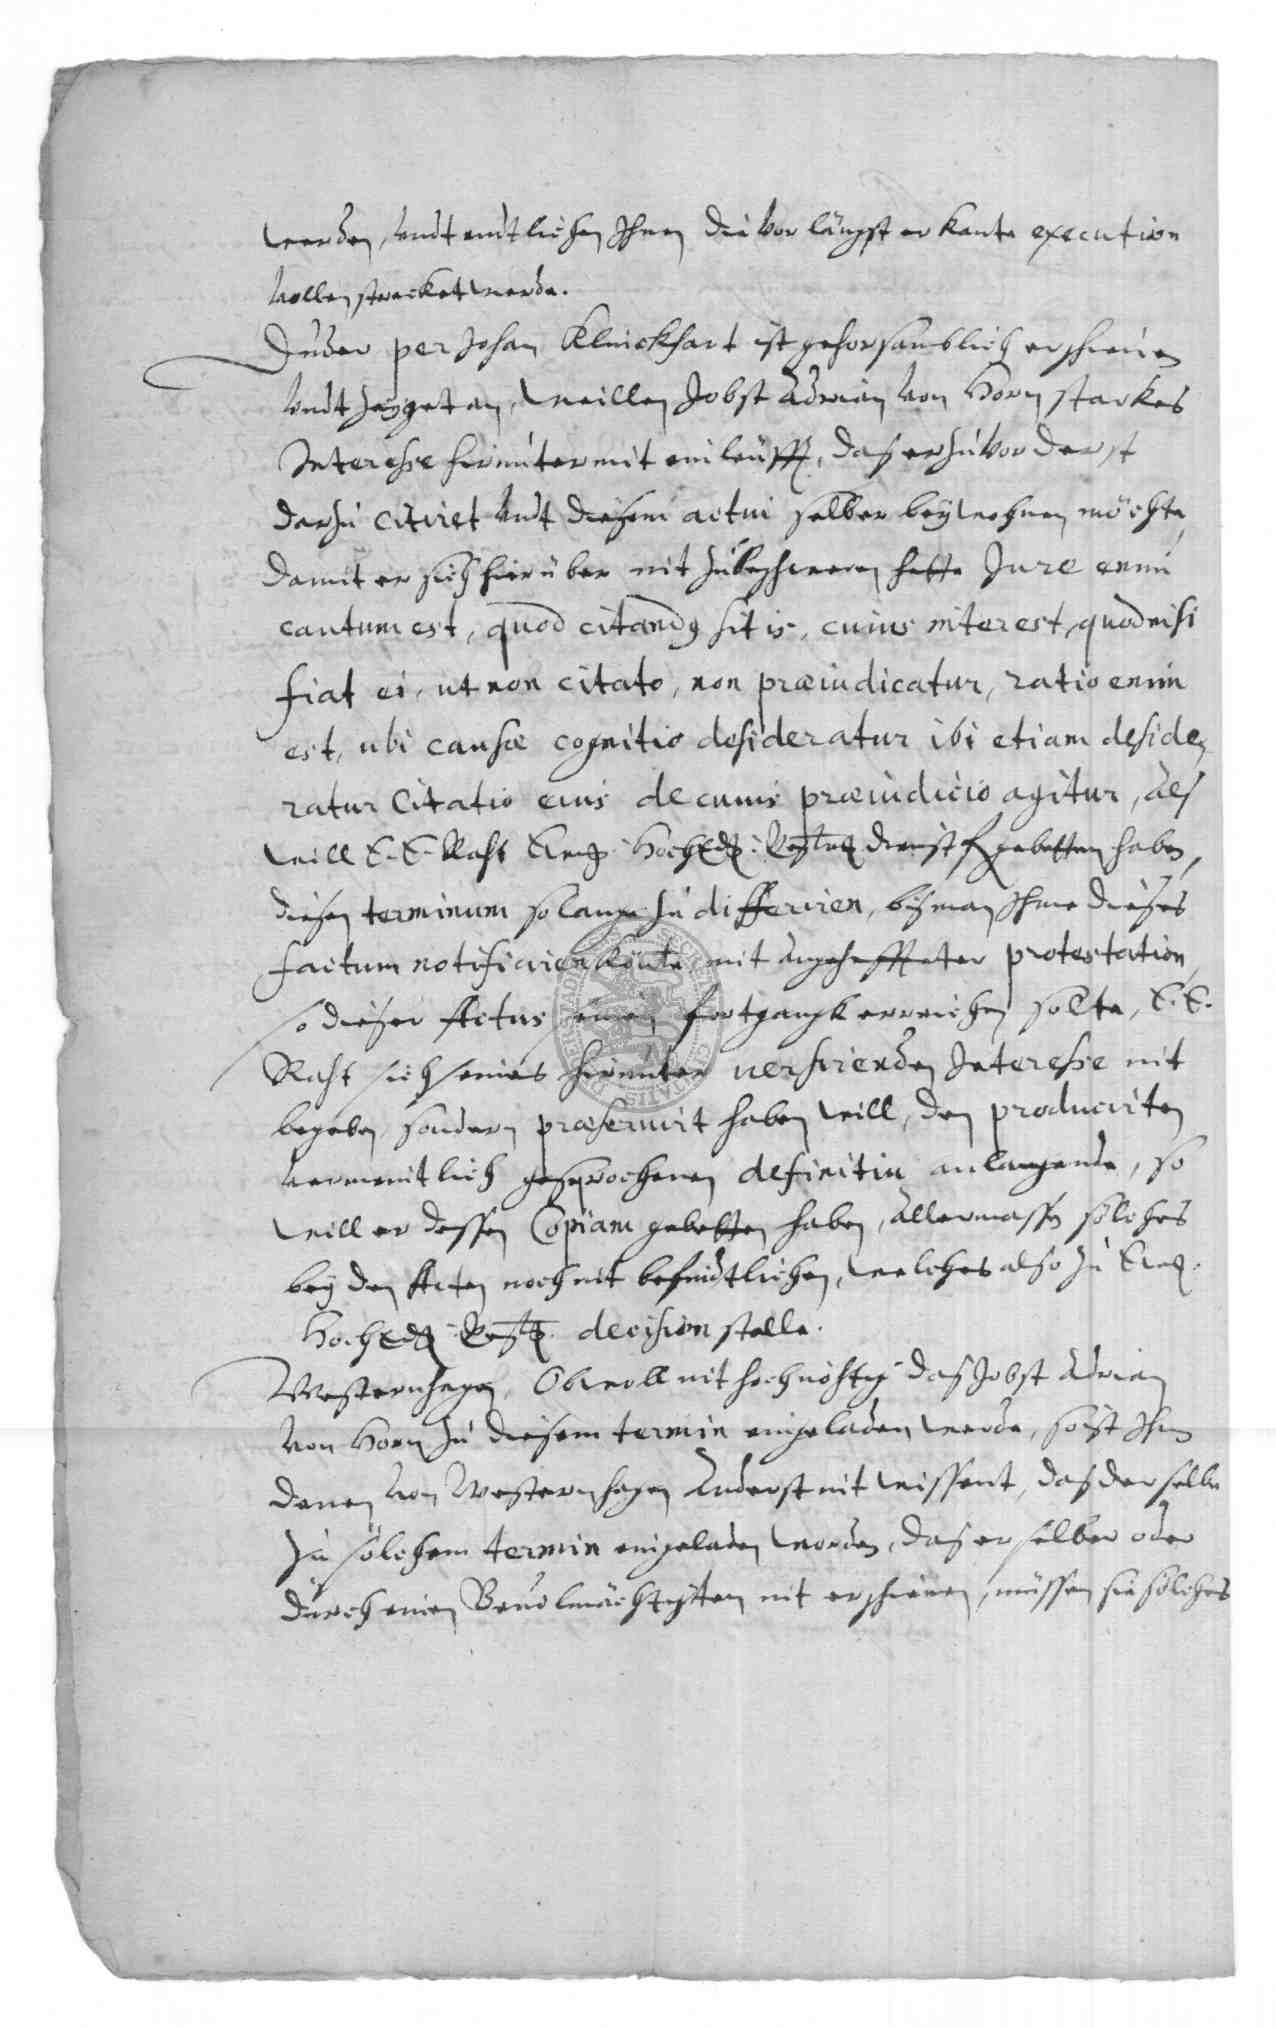 werden, undt entlichen Ihnen die vorlängst erkante execution
vollenstrecket werde.
Duder per Johan Klinckhart ist gehorsamblich erschienen
undt zeyget an, weillen Jobst Adrian von Horn starkes
Interesse hirunter mit einleufft, das er zuvorderst
darzu citiret undt diesem actui selber beywohnen möchte,
damit er sich hierüber nit zubeschweren hette Jure enim
cautum est, quod citandus sit is, cuius interest, quod nisi
fiat ei, ut non citato, non præiudicatur, ratio enim
est, ubi causæ cognitio desideratur ibi etiam deside-
ratur Citatio eius de cuius præiudicio agitur, als
will E. E. Raht Ewg. HochEdl. dienstf. gebetten haben,
diesen terminum so lange zu differiren, bis man Ihme dieses
factum notificiren könte, mit angeheffteter protestation,
so dieser Actus einen fortgangk erreichen solte, E. E.
Raht sich seines hirunter versirenden Interesse nit
begeben, sondern præservirt haben will, den producirten
vermeintlich gesprochenen definitiv anlangende, so
will er dessen Copiam gebetten haben, allermassen solches
bey den Acten noch nit befindtlichen, welches also zu Ewg.
HochEdl. decision stelle.
Westernhagen, Obwoll nit hochnöhtig das Jobst Adrian
von Horn zu diesem termin eingeladen werde, so ist Ihm
denen von Westernhagen anderst nit wissent, das derselbe
zu solchem termin eingeladen worden, das er selber oder
durch einen Bevolmächtigten nit erschienen, müssen sie solches